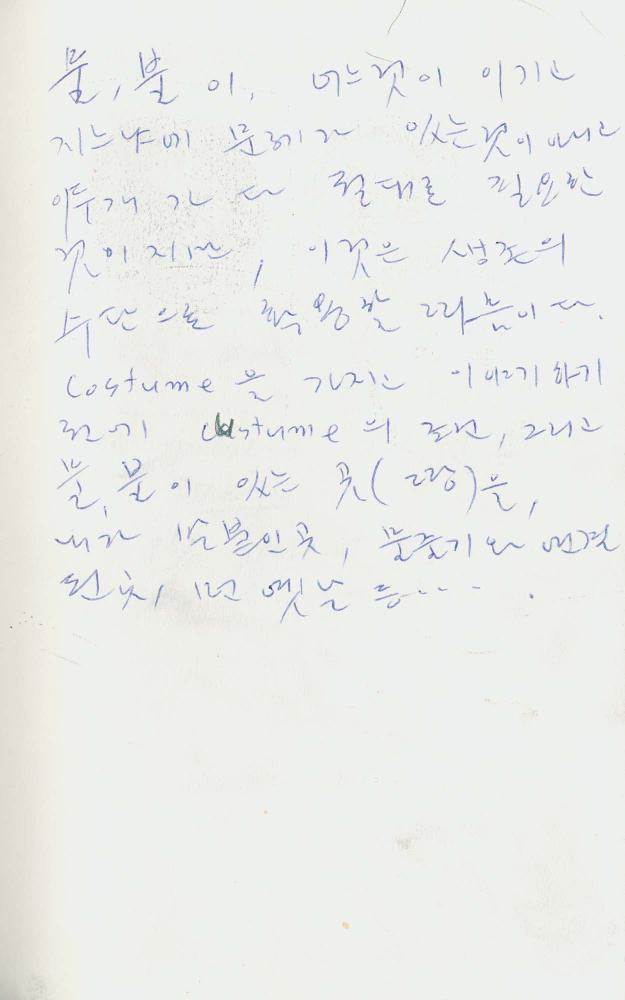 물, 불 이, 어느것이 이기고
지느냐에 문제가 있는것이 아니고
이두개가 다 절대로 필요한
것이지만, 이것은 생존의
수단으로 작용할 따름이다.
costume 을 가지고 이야기하기
전에 costume 의 조건, 그리고
물, 불이 있는 곳( )을,
내가 곳, 물줄기와 연결
된 곳, 먼 옛날 등.... .